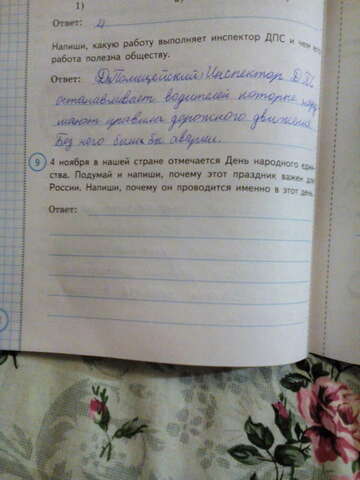 1)
Ответ: 4
Напиши, какую работу выполняет инспектор ДПС и чем его
работа полезна обществу.
Ответ: Инспектор ДПС
останавливает водителей которые нару
шают правила дорожного движения.
Без него были бы аварии.
9 4 ноября в нашей стране отмечается День народного един-
ства. Подумай и напиши, почему этот праздник важен для
России. Напиши, почему он проводится именно в этот день.
Ответ: